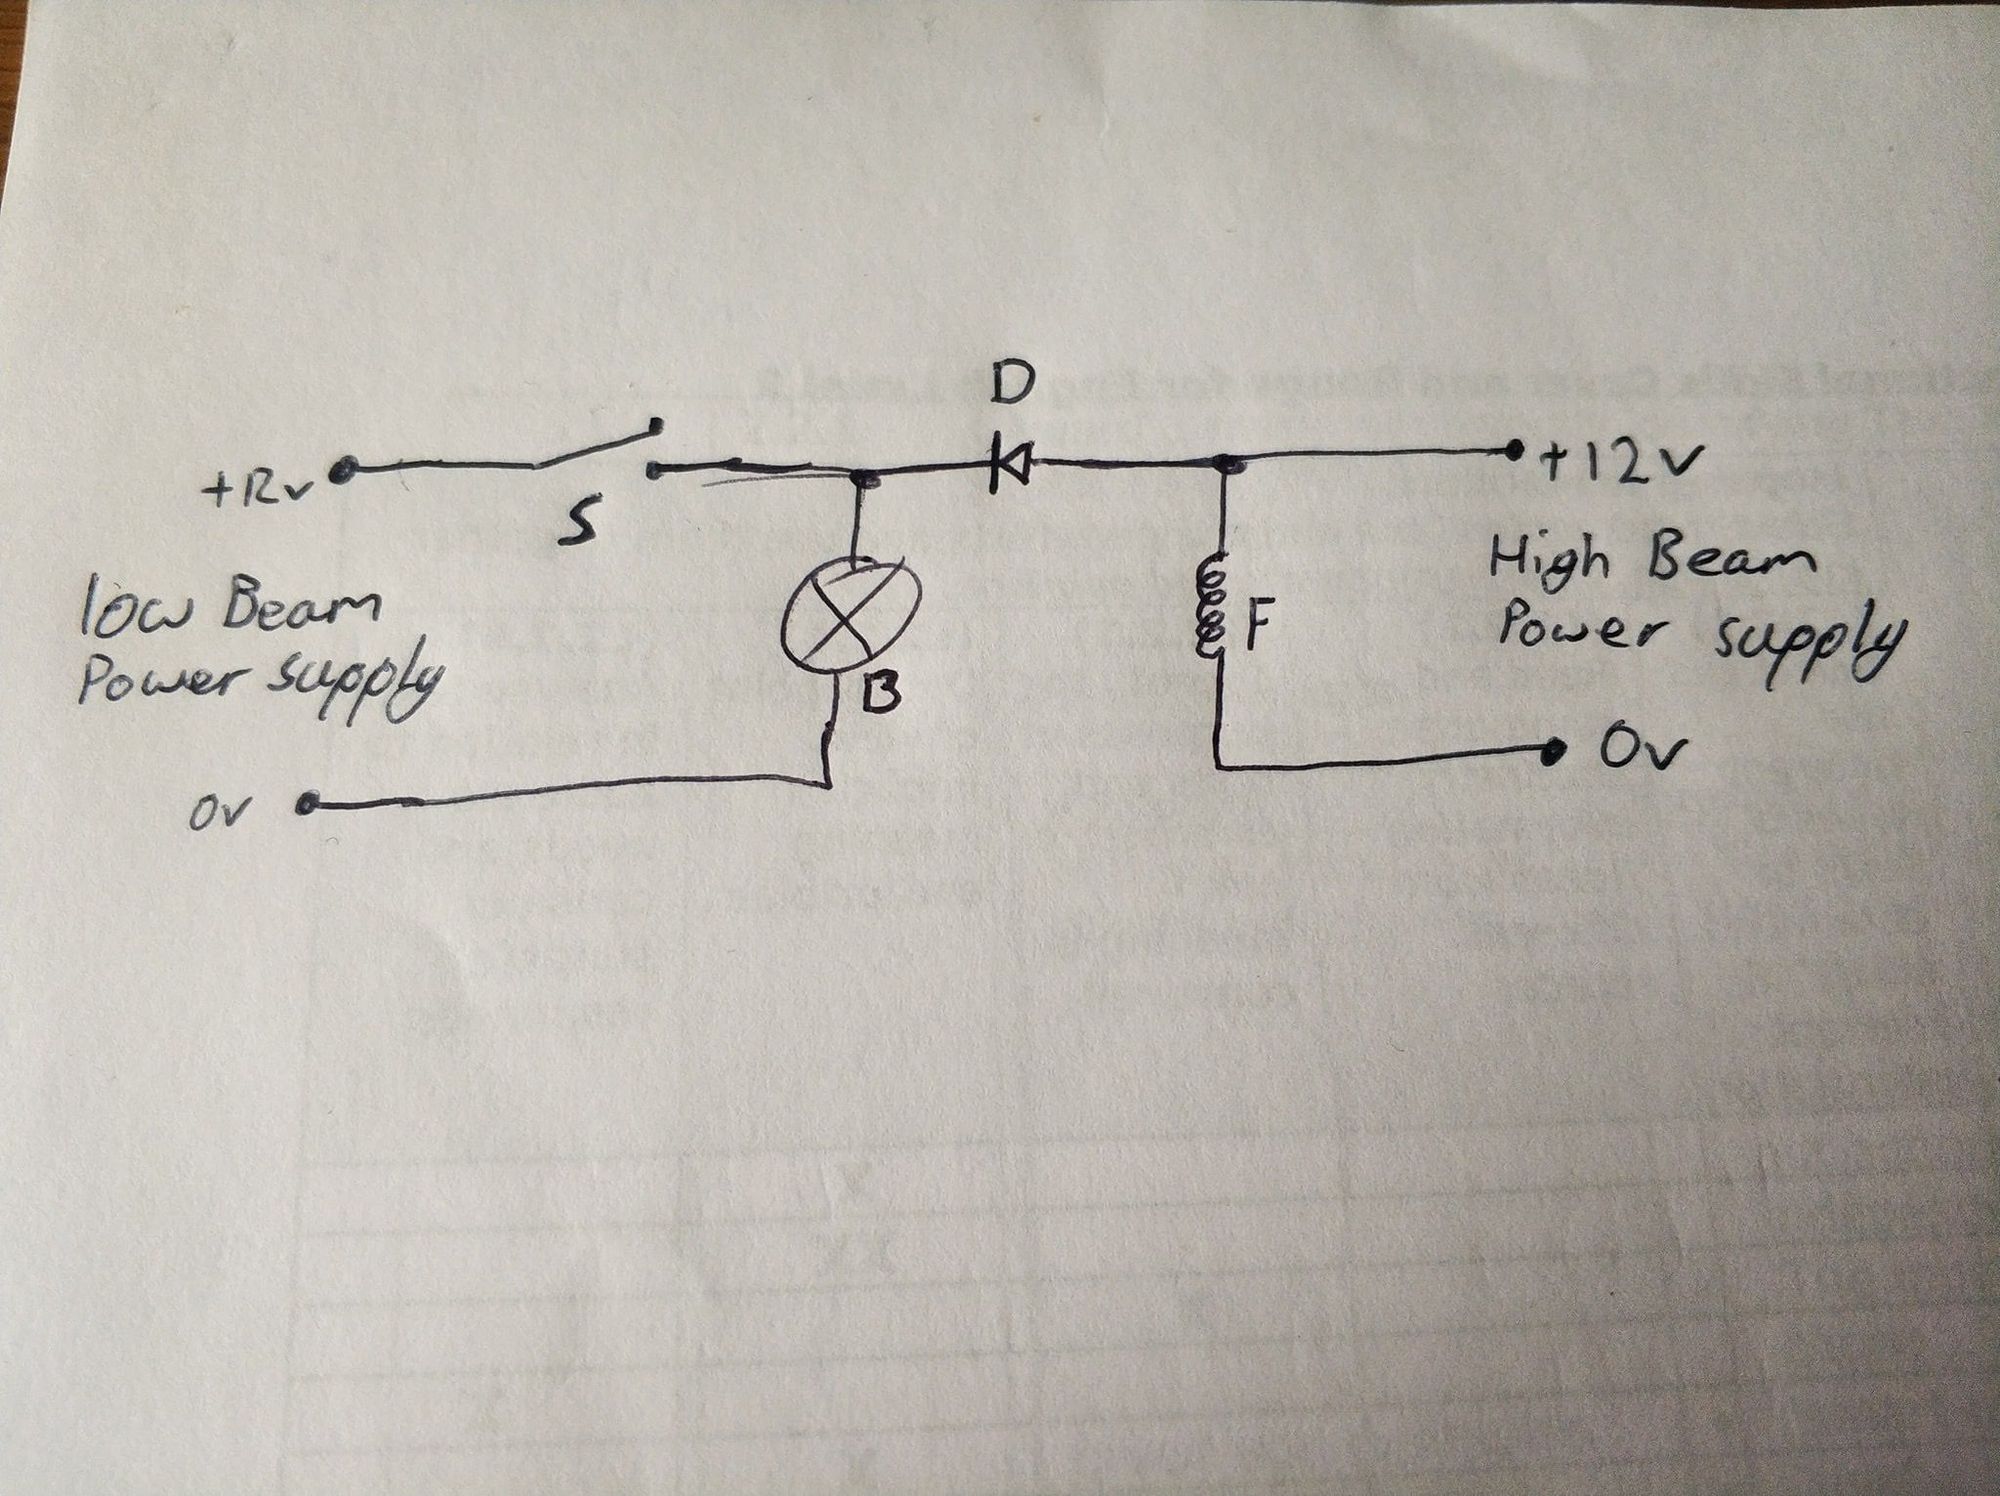 D
+12v
S
+12v
low Beam
Power supply
High Beam
Power supply
F
B
0v
0v